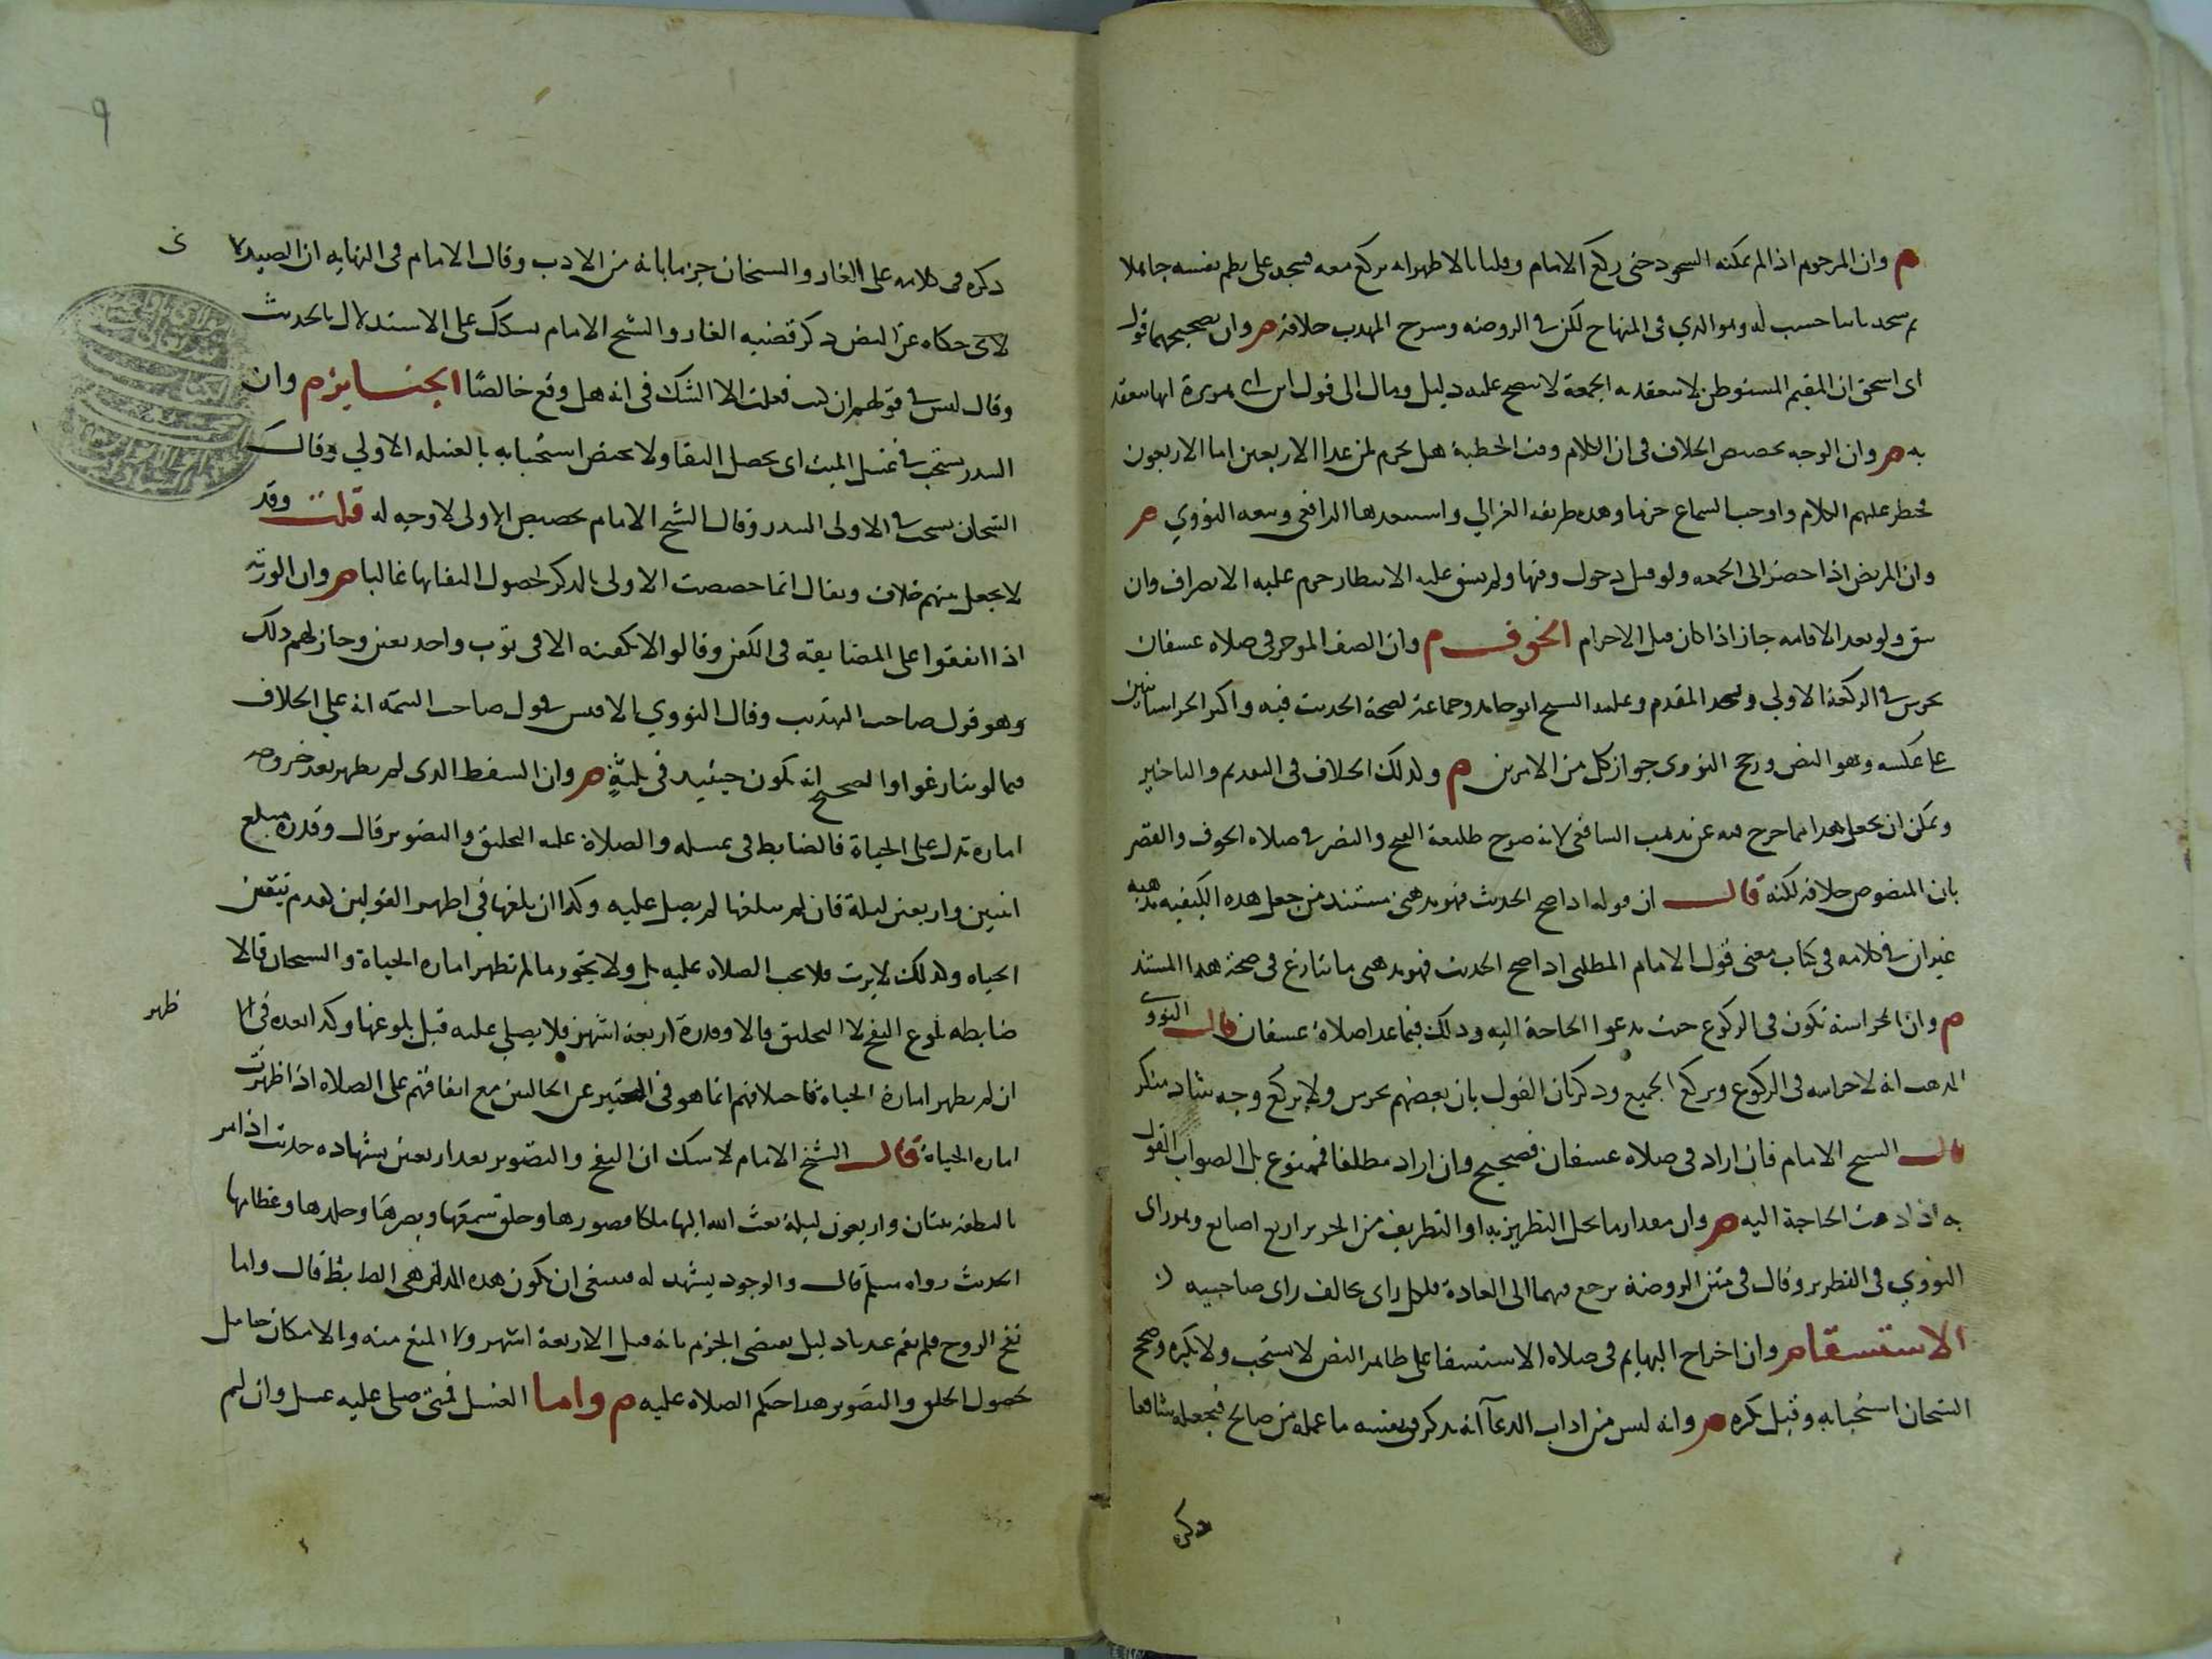 م وان المزحوم اذا لم يمكنه السجود حتى ركع الامام وقلنا بالاظهر انه يركع معه فسجد على نظم نفسه جاهلا
ثم سجد ثانيا حسب له وهو الذي في المنهاج لكن في الروضه وسرح المهدب خلافه م وان تصحيحهما قول
ابي اسحق ان المقيم المستوطن لا تنعقد به الجمعة لا يتضح عليه دليل ومال الى قول ابن ابي هريرة انها تنعقد
به م وان الوجه تخصيص الخلاف في ان الكلام وقت الخطبة هل يحرم لمن عدا الاربعين اما الاربعون
فيحظر عليهم الكلام واوجب السماع جزما وهده طريقه الغزالي واستبعدها الرافعي وتبعه النووي م
وان المريض اذا حضر الى الجمعه ولو قبل دخول وقتها ولم يشق عليه الانتظار حرم عليه الانصراف وان
شق ولو بعد الاقامه جاز اذا كان قبل الاحرام الخوف م وان الصف الموخر في صلاه عسفان
يحرس في الركعة الاولي ويسجد المقدم وعليه السيح ابو حامد وجماعة لصحة الحديث فيه واكثر الخراسانيين
على عكسه وهو النص ورجح النووى جواز كل من الامرين م ولدلك الخلاف في التقديم والتاخير
ويمكن ان يجعل هدا مما خرج فيه عن مدهب السافعى لانه صرح طليعة الفتح والنصر في صلاه الخوف والقصر
بان المنصوص خلافه لكنه قال ان قوله ادا صح الحديث فهو مدهبى مستند من جعل هده الكيفيه مدهبه
غير ان في كلامه في كتاب معنى قول الامام المطلبى ادا صح الحديث فهو مدهبى ما ينازع في صحة هدا المستند
م وان الحراسة تكون في الركوع حيث تدعوا الحاجة اليه ودلك فيما عدا صلاة عسفان قال النووى
المدهب انه لا حراسه في الركوع ويركع الجميع ودكر ان القول بان بعضهم يحرس ولا يركع وجه شاد منكر
قال السيح الامام فان اراد في صلاه عسفان فصحيح وان اراد مطلقا فممنوع بل الصواب القول
به اذا دعت الحاجة اليه م وان مقدار ما يحل التطريز به او التطريف من الحرير اربع اصابع وهو راى
النووي في التطريز وقال في متن الروضة يرجع فيهما الى العادة فلكل راى يخالف راى صاحبيه
الاستسقا م وان اخراج البهايم في صلاه الاستسقا على ظاهر النص لا يستحب ولا يكره وصحح
الشيخان استحبابه وقيل يكره م وانه ليس من اداب الدعآ انه يدكر في نفسه ما عمله من صالح فيجعله شافعا
دكره
٩
دكره في كلامه على الغار والسيخان جزما بانه من الادب وقال الامام في النهايه ان الصيدلا
نى
لانى حكاه عن البعض دكر قضيه الغار والشيخ الامام سكك على الاستدلال بالحديث
وقال ليس في قولهم ان كنت فعلت الا الشك في انه هل وقع خالصًا الجنايز م وان
السدر يستحب في غسل الميت اى يحصل النقا ولا يختص استحبابه بالغسله الاولي وقال
الشيخان يستحب في الاولى السدر وقال الشيخ الامام تخصيص الاولى لا وجه له قلت وقد
لا يجعل بينهم خلاف ويقال انما خصصت الاولى بالدكر لحصول النقا بها غالبا م وان الورثه
اذا اتفقوا على المضايقة في الكفن وقالوا لا نكفنه الا في توب واحد تعين وجاز لهم دلك
وهو قول صاحب التهديب وقال النووي بالاقيس قول صاحب التتمه انه على الخلاف
فيما لو تنازعوا والصحيح انه يكون حينيد في ثلثةٍ م وان السقط الدى لم يظهر بعد خروجه
امارة تدل على الحياة فالضابط في غسله والصلاة عليه التخليق والتصوير قال وقدره مبلغ
اثنين واربعين ليلة فان لم يبلغها لم يصل عليه وكدا ان بلغها في اظهر القولين لعدم تيقن
الحياه ولدلك لا يرث فلا يجب الصلاه عليه بل ولا يجوز ما لم تظهر اماره الحياة والسيخان قالا
ضابطه بلوغ النفخ لا التخليق قالا وقدرة اربعة اشهر فلا يصلي عليه قبل بلوغها وكدا بعده في الا
ظهر
ان لم يظهر امارة الحياة فاختلافهم انما هو في التعبير عن الحالتين مع اتفاقهم على الصلاه اذا ظهرت
اماره الحياة قال الشيخ الامام لا سك ان النفخ والتصوير بعد اربعين بشهاده حديث اذا مر
بالنطفة ثنتان واربعون ليلة بعث الله اليها ملكا فصورها وخلق سمعها وبصرها وجلدها وعظامها
الحديث رواه مسلم قال والوجود يشهد له فينبغى ان يكون هده المدة هى الضابط قال واما
نفخ الروح فلم يقم عندنا دليل يقتضى الجزم بانه قبل الاربعة اشهر ولا المنع منه والامكان حاصل
بحصول الخلق والتصوير هدا حكم الصلاه عليه م واما الغسل فمتى صلى عليه غسل وان لم